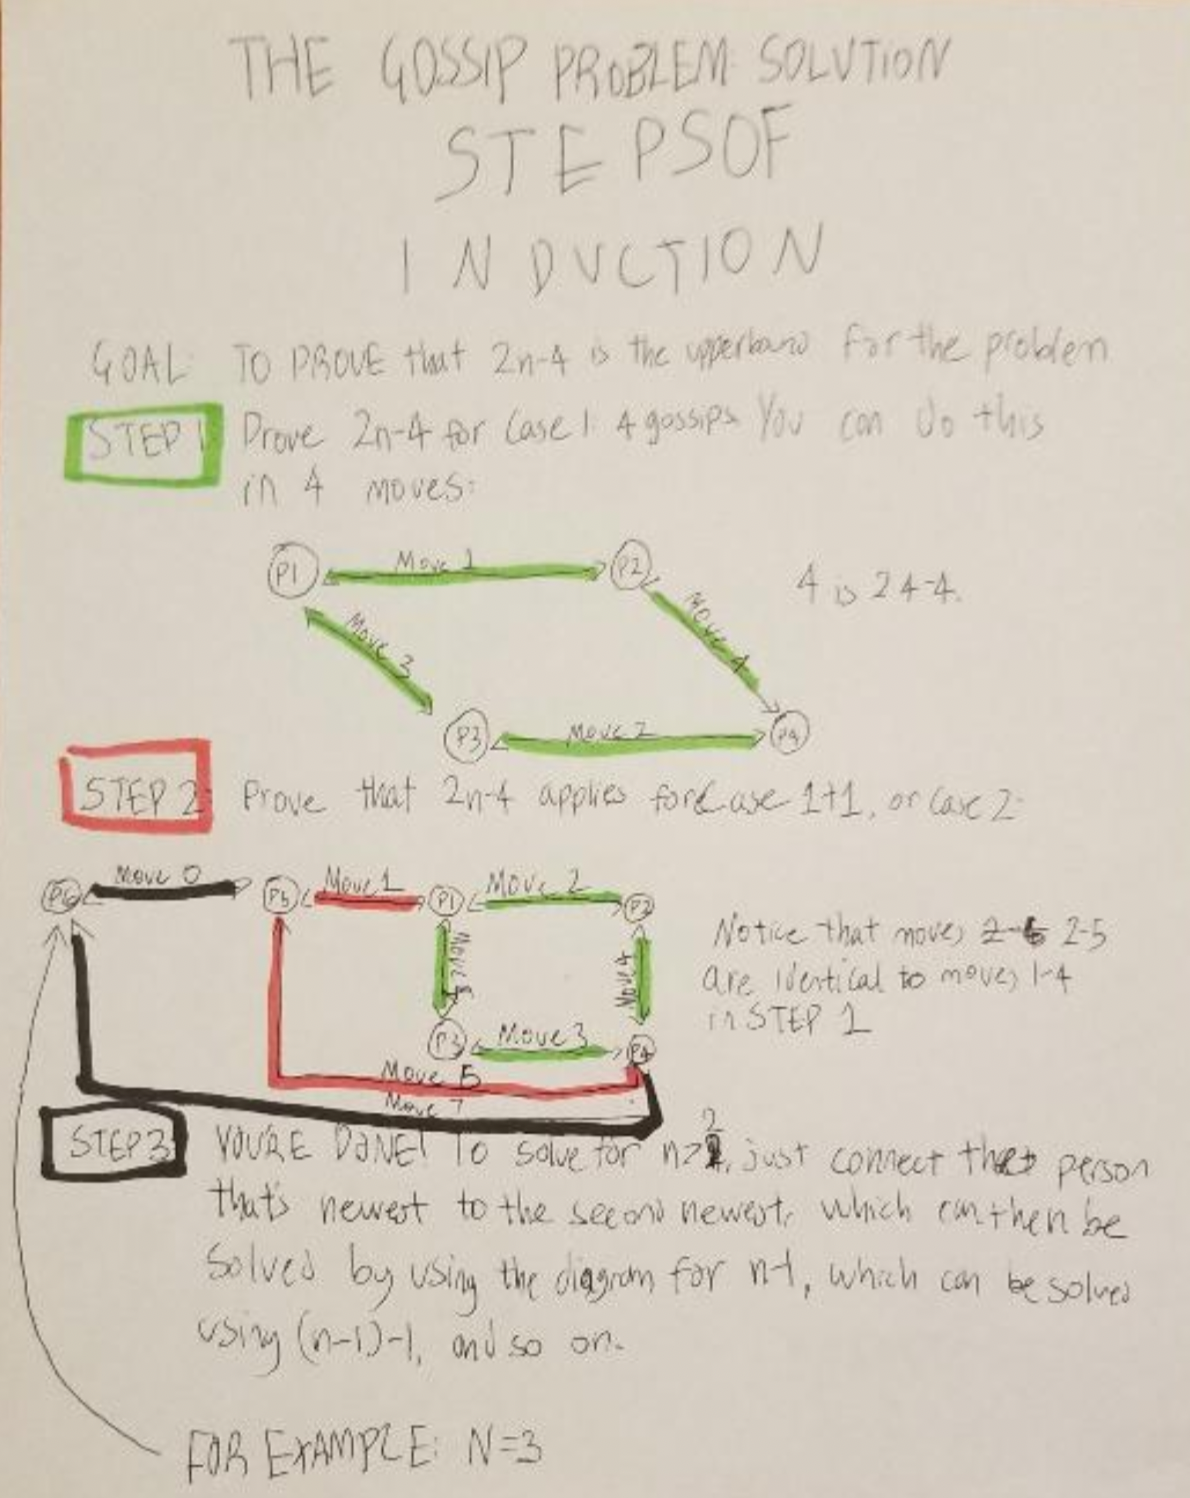 THE GOSSIP PROBLEM SOLUTION
STEPS OF
INDUCTION
GOAL: TO PROVE that 2n-4 is the upperbound for the problem
STEP 1 Prove 2n-4 for Case 1: 4 gossips. You can do this
in 4 moves:
P1 Move 1 P2
4 is 2 4-4.
Move 3 Move 4
P3 Move 2 P4
STEP 2 Prove that 2n-4 applies for Case 1+1, or Case 2:
P6 Move 0 P5 Move 1 P1 Move 2 P2
Notice that moves 2-5
Move 5 Move 4
are identical to moves 1-4
in STEP 1
P3 Move 3 P4
Move
Move 7
STEP 3 YOU'RE DONE! To solve for n>2, just connect the person
that's newest to the second newest, which can then be
solved by using the diagram for n-1, which can be solved
using (n-1)-1, and so on.
FOR EXAMPLE: N=3